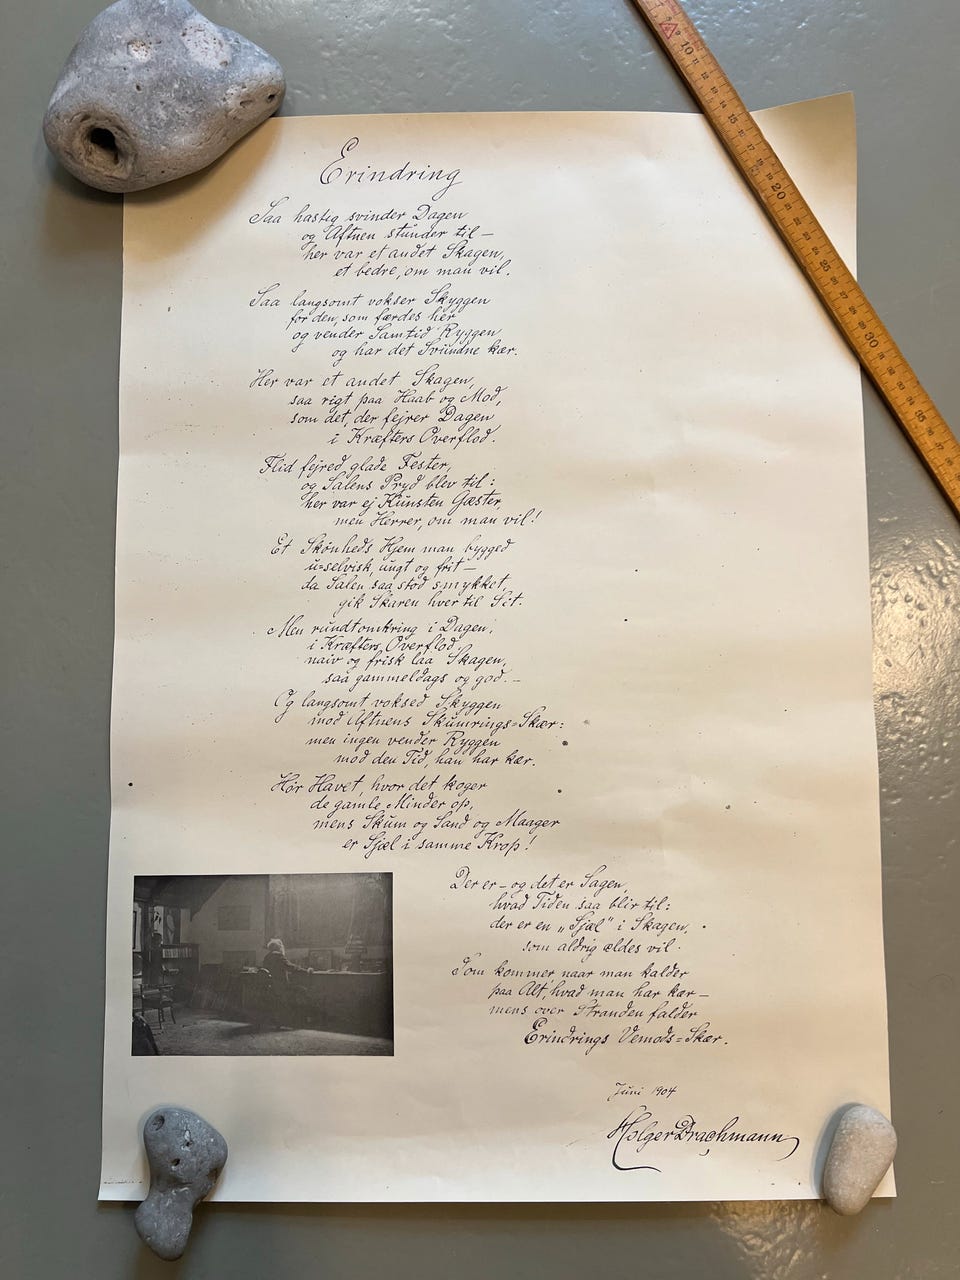 Erindring
Saa hastig svinder Dagen
og Aftnen stunder til —
her var et andet Skagen,
et bedre, om man vil.
Saa langsomt vokser Skyggen
for den, som færdes her
og vender Samtid Ryggen
og har det Svundne kær.
Her var et andet Skagen,
saa rigt paa Haab og Mod,
som det, der fejrer Dagen
i Kræfters Overflod.
Flid fejred glade Fester,
og Salens Pryd blev til:
her var ej Kunsten Gæster,
men Herrer, om man vil!
Et Skønheds Hjem man bygged
u=selvisk, ungt og frit —
da Salen saa stod smykket,
gik Skaren hver til Sit.
Men rundtomkring i Dagen,
i Kræfters Overflod,
naiv og frisk laa Skagen,
saa gammeldags og god. —
Og langsomt voksed Skyggen
mod Aftnens Skumrings=Skær:
men ingen vender Ryggen
mod den Tid, han har kær.
Hør Havet, hvor det koger
de gamle Minder op,
mens Skum og Sand og Maager
er Sjæl i samme Krop!
Der er — og det er Sagen,
hvad Tiden saa blir til:
der er en „Sjæl" i Skagen,
som aldrig ældes vil.
Som kommer naar man kalder
paa Alt, hvad man har kær —
mens over Stranden falder
Erindrings Vemods=Skær.
Juni 1904
Holger Drachmann
10 11 12 13 14 15 16 17 18 19 20 21 22 23 24 25 26 27 28 29 30 31 32 33 34 35 36 37 38